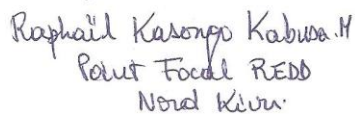 Raphaël Kasongo Kabusa.M
Point Focal REDD
Nord Kivu.